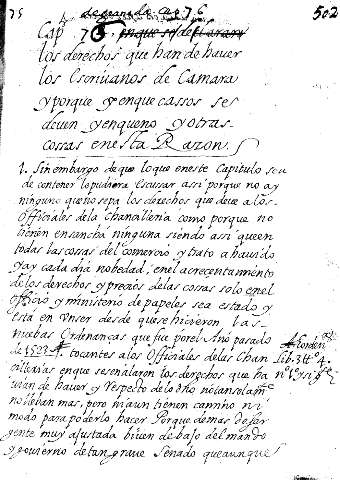 75 502
Cap 76
los derechos que han de haver
los Escrivanos de Camara
y porque y en que cassos se
deven y en que no y otras
cossas en esta Razon.
1. Sin embargo de que lo que en este Capitulo se a
de contener lo pudiera escussar assi porque no ay
ninguno que no sepa los derechos que deve a los
Officiales de la Chancilleria como porque no
tienen ensancha ninguna siendo assi que en
todas las cossas del comercio y trato a havido
y ay cada dia nobedad, en el acrecentamiento
de los derechos y precios de las cossas solo en el
officio y ministerio de papeles se a estado y
está en un ser desde que se hicieron las
nuebas Ordenanças que fue por el año pasado
de tocantes a los Officiales de las Chan
cillerias en que señalaron los derechos que ha
vian de haver y respecto de lo dho no tan solamte
no lleban mas, pero ni aun tienen camino ni
modo para poderlo hacer. Porque demas de ser
gente muy ajustada biven debajo del mando
y govierno de tan grave Senado que aunque
Lib. 3 tt.o 4.